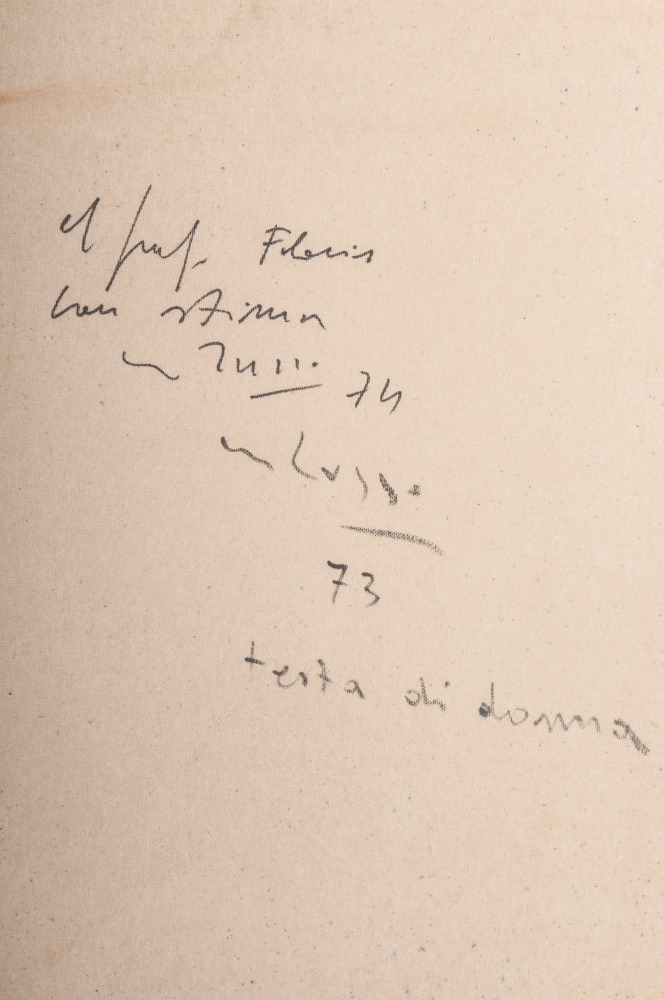 al prof. Flavio
con stima
74
73
testa di donna